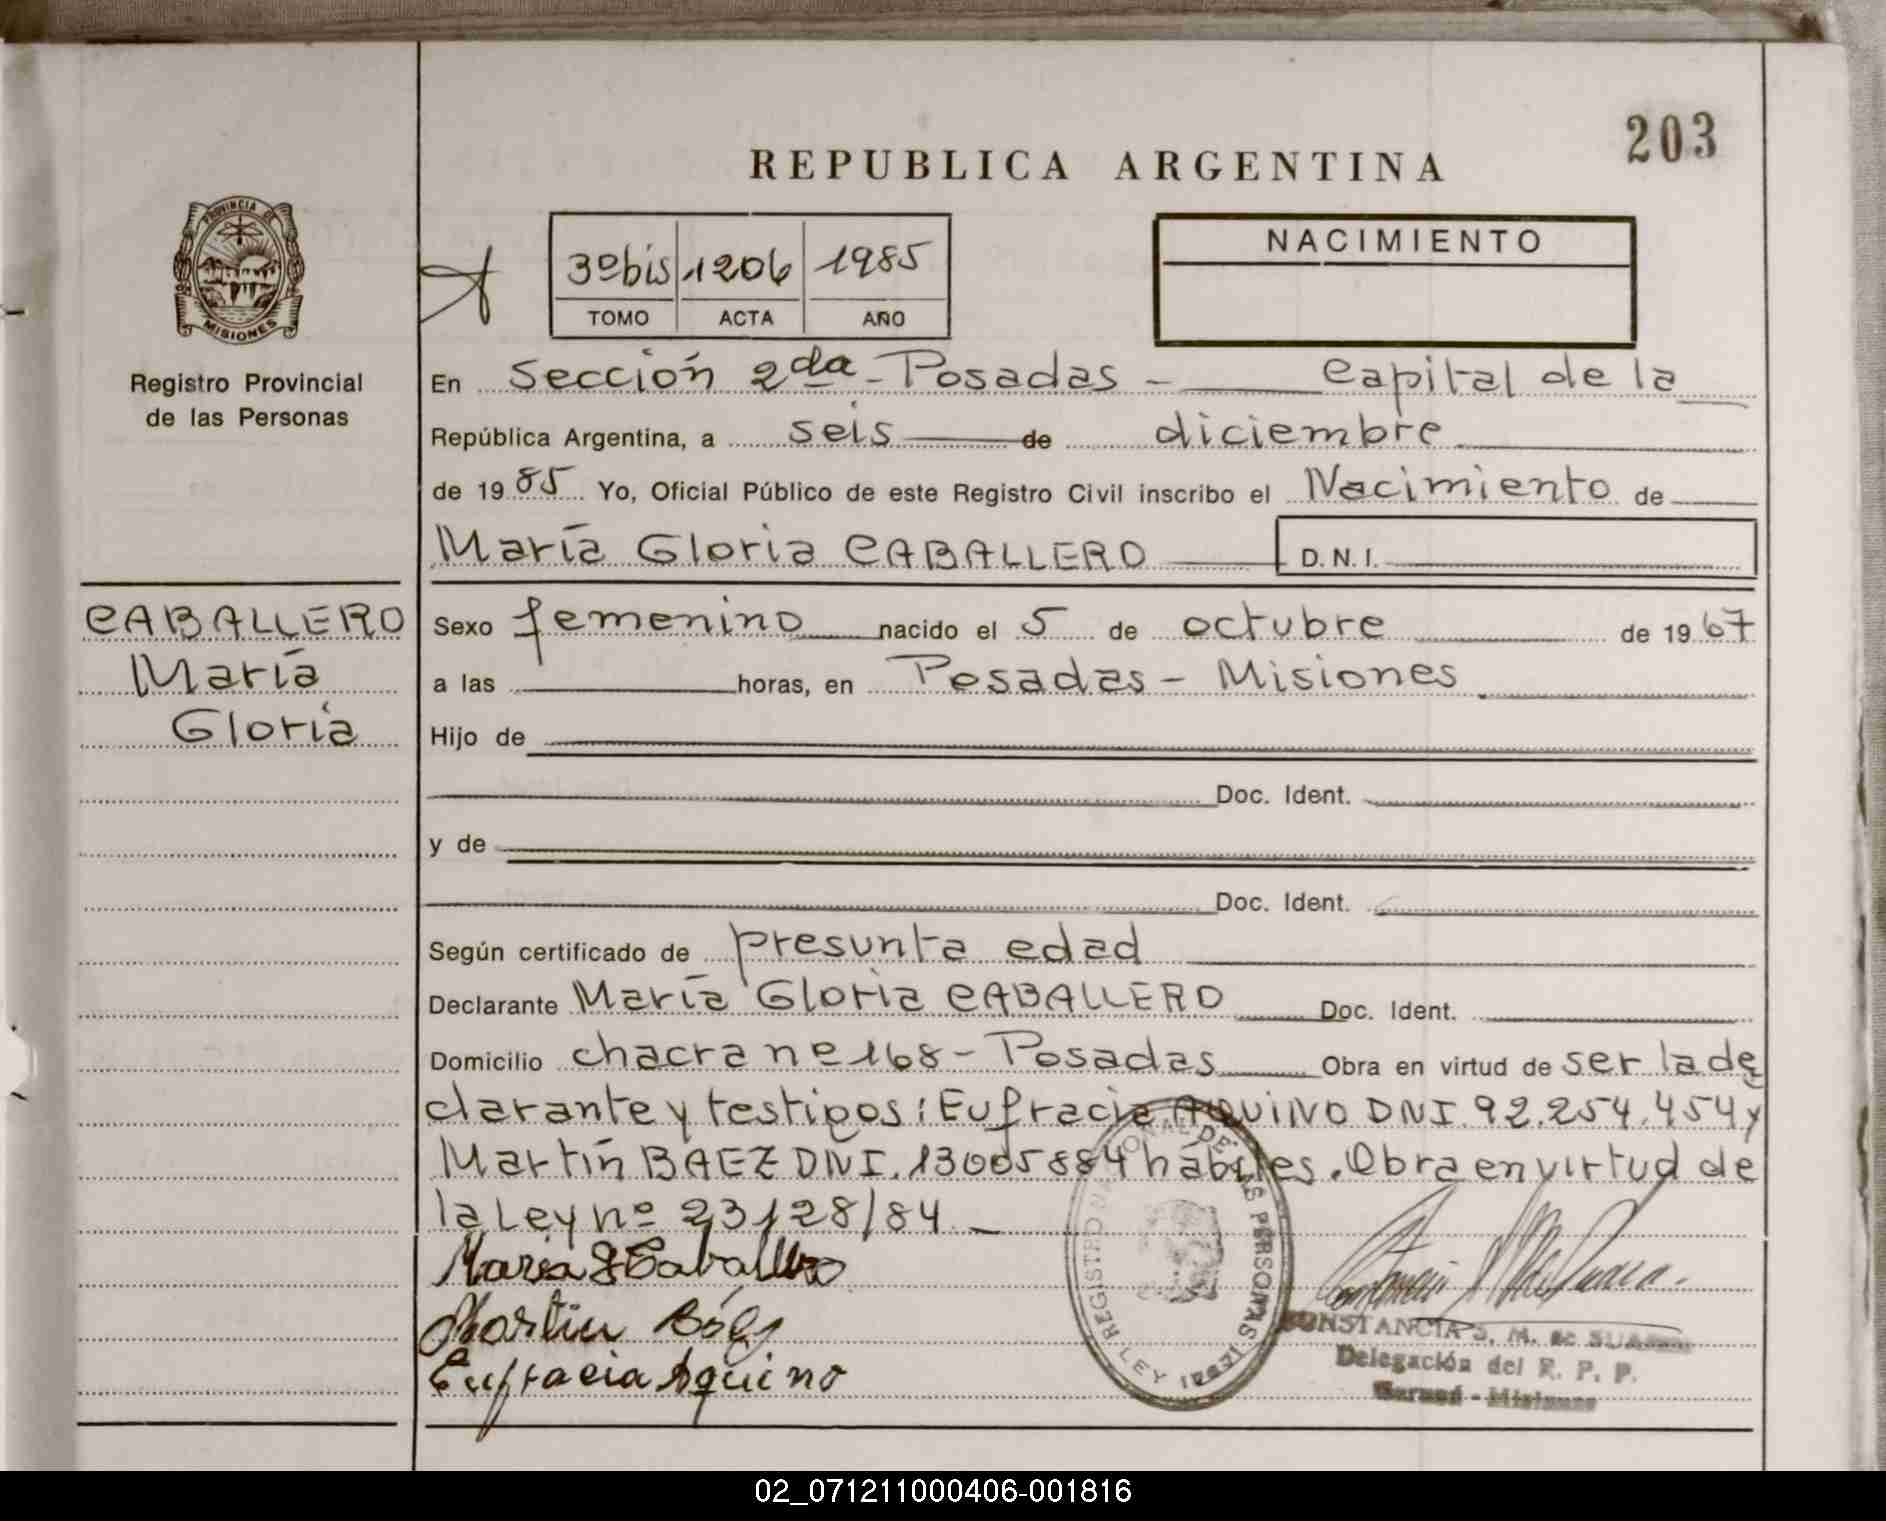 203
REPUBLICA ARGENTINA
PROVINCIA DE
MISIONES
Registro Provincial
de las Personas
3º bis 1206 1985
TOMO ACTA AÑO
NACIMIENTO
En Sección 2da - Posadas - Capital de la
República Argentina, a seis de diciembre
de 1985 Yo, Oficial Público de este Registro Civil inscribo el Nacimiento de
María Gloria CABALLERO D.N.I.
CABALLERO
María
Gloria
Sexo femenino nacido el 5 de octubre de 1967
a las horas, en Posadas - Misiones
Hijo de
Doc. Ident.
y de
Doc. Ident.
Según certificado de presunta edad
Declarante María Gloria CABALLERO Doc. Ident.
Domicilio chacra nº 168 - Posadas Obra en virtud de ser la de
clarante y testigos: Eufracia AQUINO DNI. 92.254.454 y
Martín BAEZ DNI. 13005884 hábiles. Obra en virtud de
la Ley nº 23128/84
Maria G Caballero
Martin
Eufracia Aquino
REGISTRO NACIONAL DE LAS PERSONAS
LEY
CONSTANCIA S. M. de
Delegación del R. P. P.
- Misiones
02_071211000406-001816